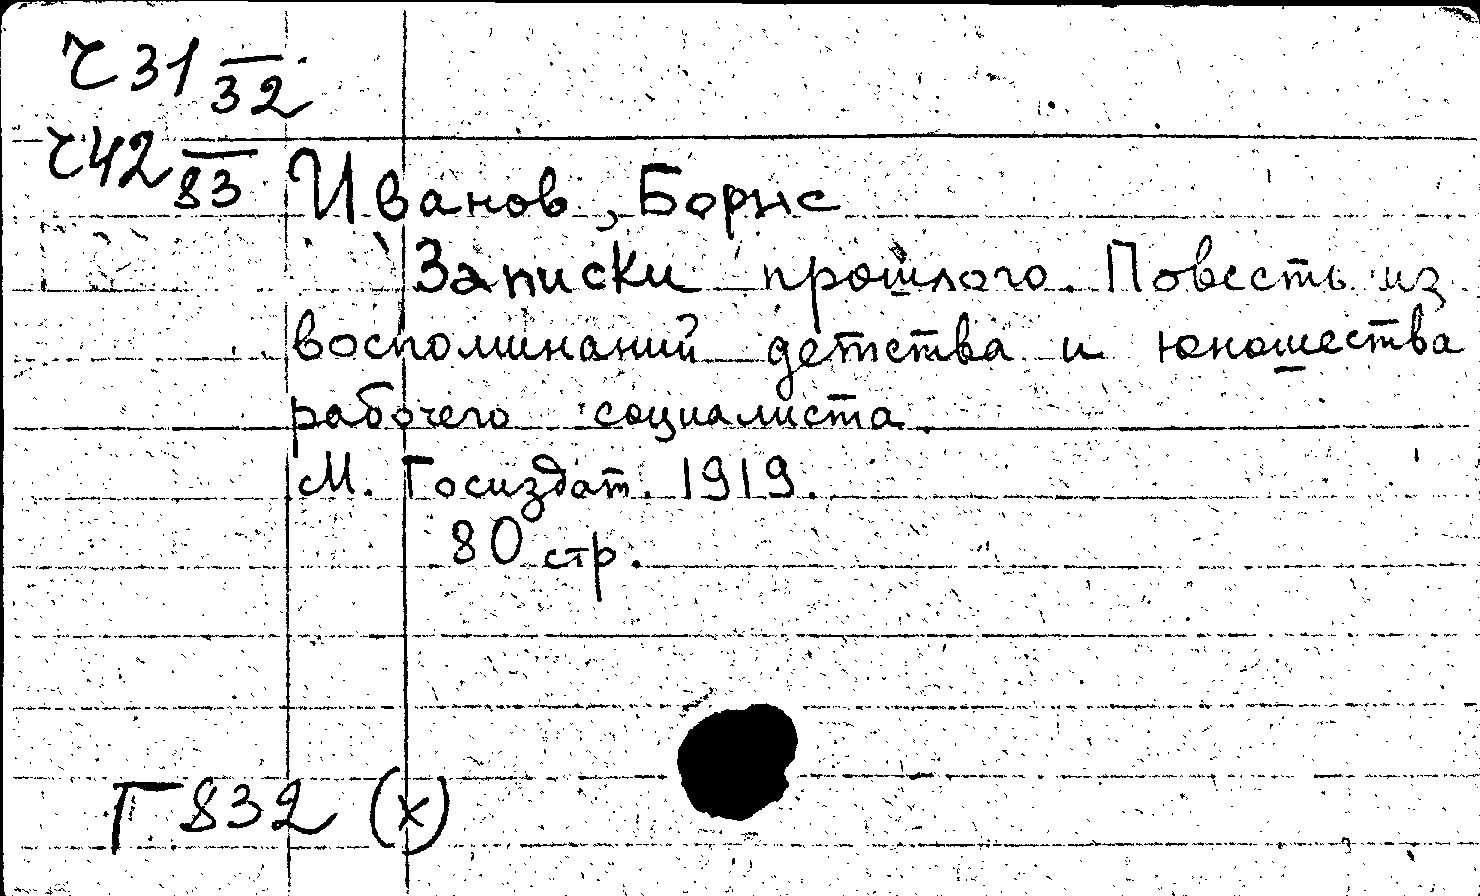 Ч31 32
Ч42 83
Иванов, Борис
Записки прошлого. Повесть из
воспоминаний детства и юношества
рабочего социалиста.
М. Госиздат. 1919.
80 стр.
Г 832 (х)